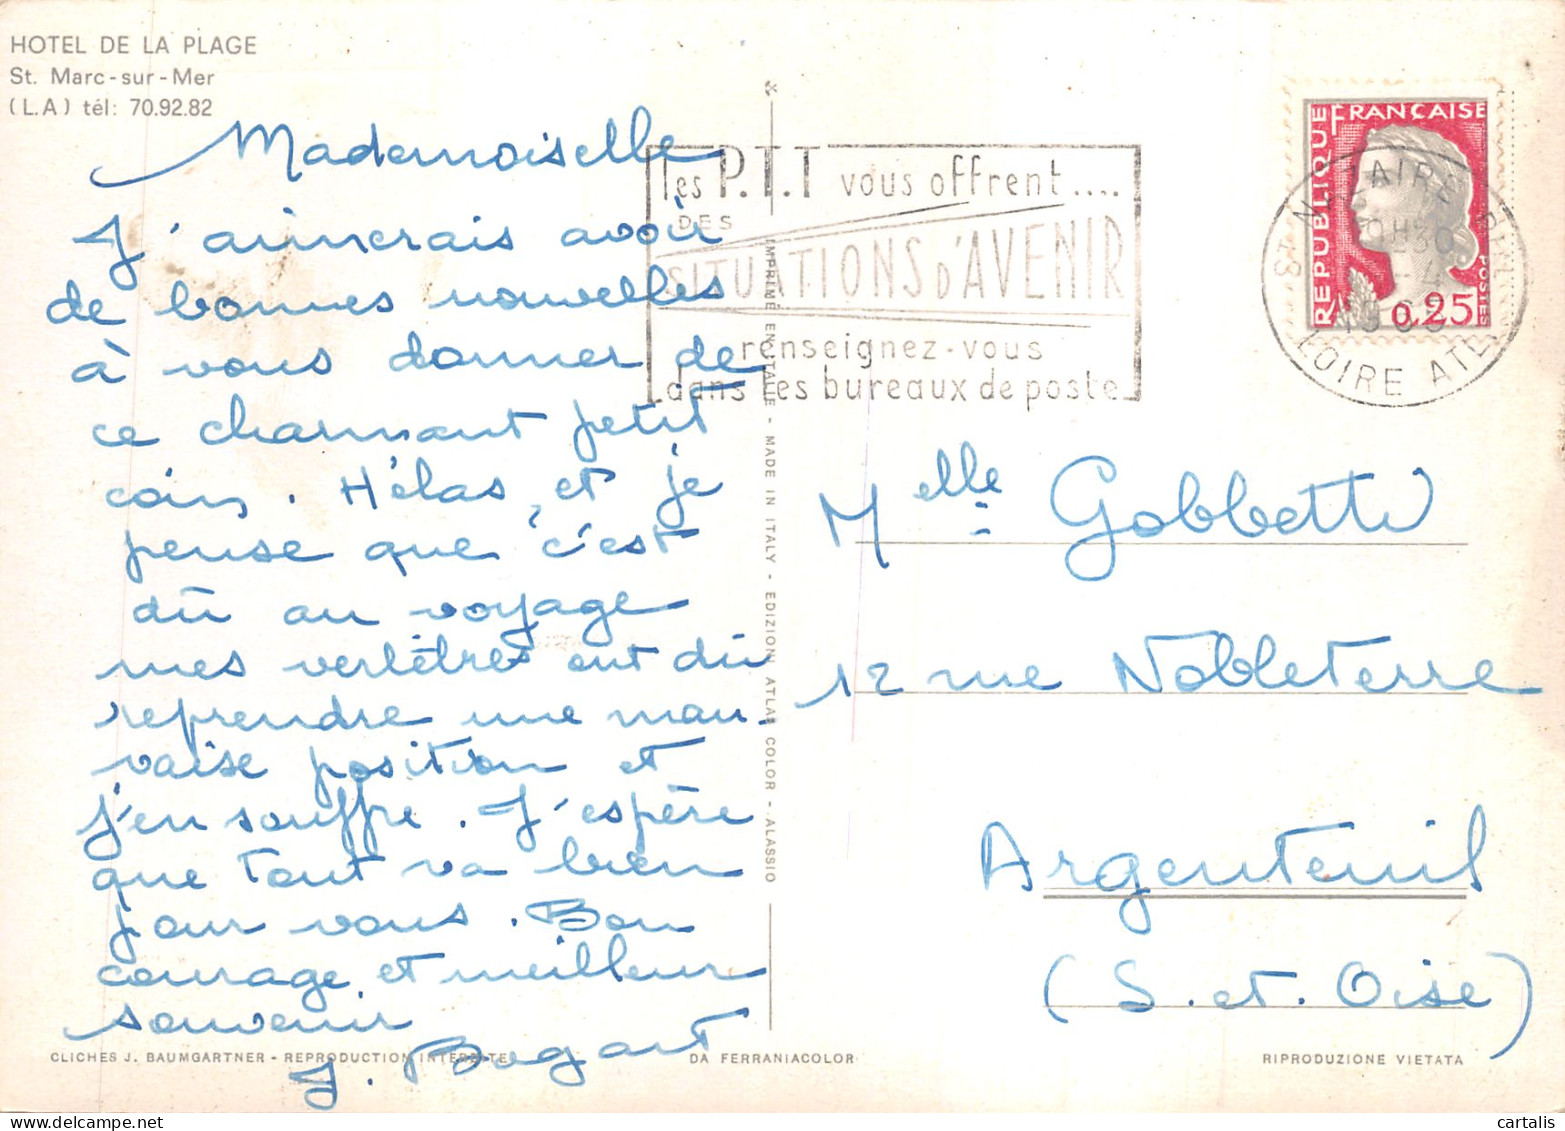 HOTEL DE LA PLAGE
St. Marc-sur-Mer
(L.A) tél: 70.92.82
Mademoiselle
J'aimerais avoir
de bonnes nouvelles
à vous donner de
ce charmant petit
coin. Hélas, et je
pense que c'est
dû au voyage
mes vertèbres ont dû
reprendre une mau-
vaise position et
j'en souffre. J'espère
que tout va bien
pour vous. Bon
courage et meilleur
souvenir
J. Bogart
les P.T.T vous offrent ....
DES
SITUATIONS d'AVENIR
renseignez-vous
dans les bureaux de poste
REPUBLIQUE FRANÇAISE
POSTES
0,25
ST NAZAIRE
LOIRE ATL
IMPRIMÉ EN ITALIE - MADE IN ITALY - EDIZIONI ATLAS COLOR - ALASSIO
Melle Gobbetti
12 rue Nobleterre
Argenteuil
(S. et. Oise)
CLICHES J. BAUMGARTNER - REPRODUCTION INTERDITE
DA FERRANIACOLOR
RIPRODUZIONE VIETATA
cartalis